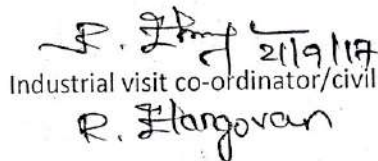 R. 21/9/17
Industrial visit co-ordinator/civil
R. Elangovan